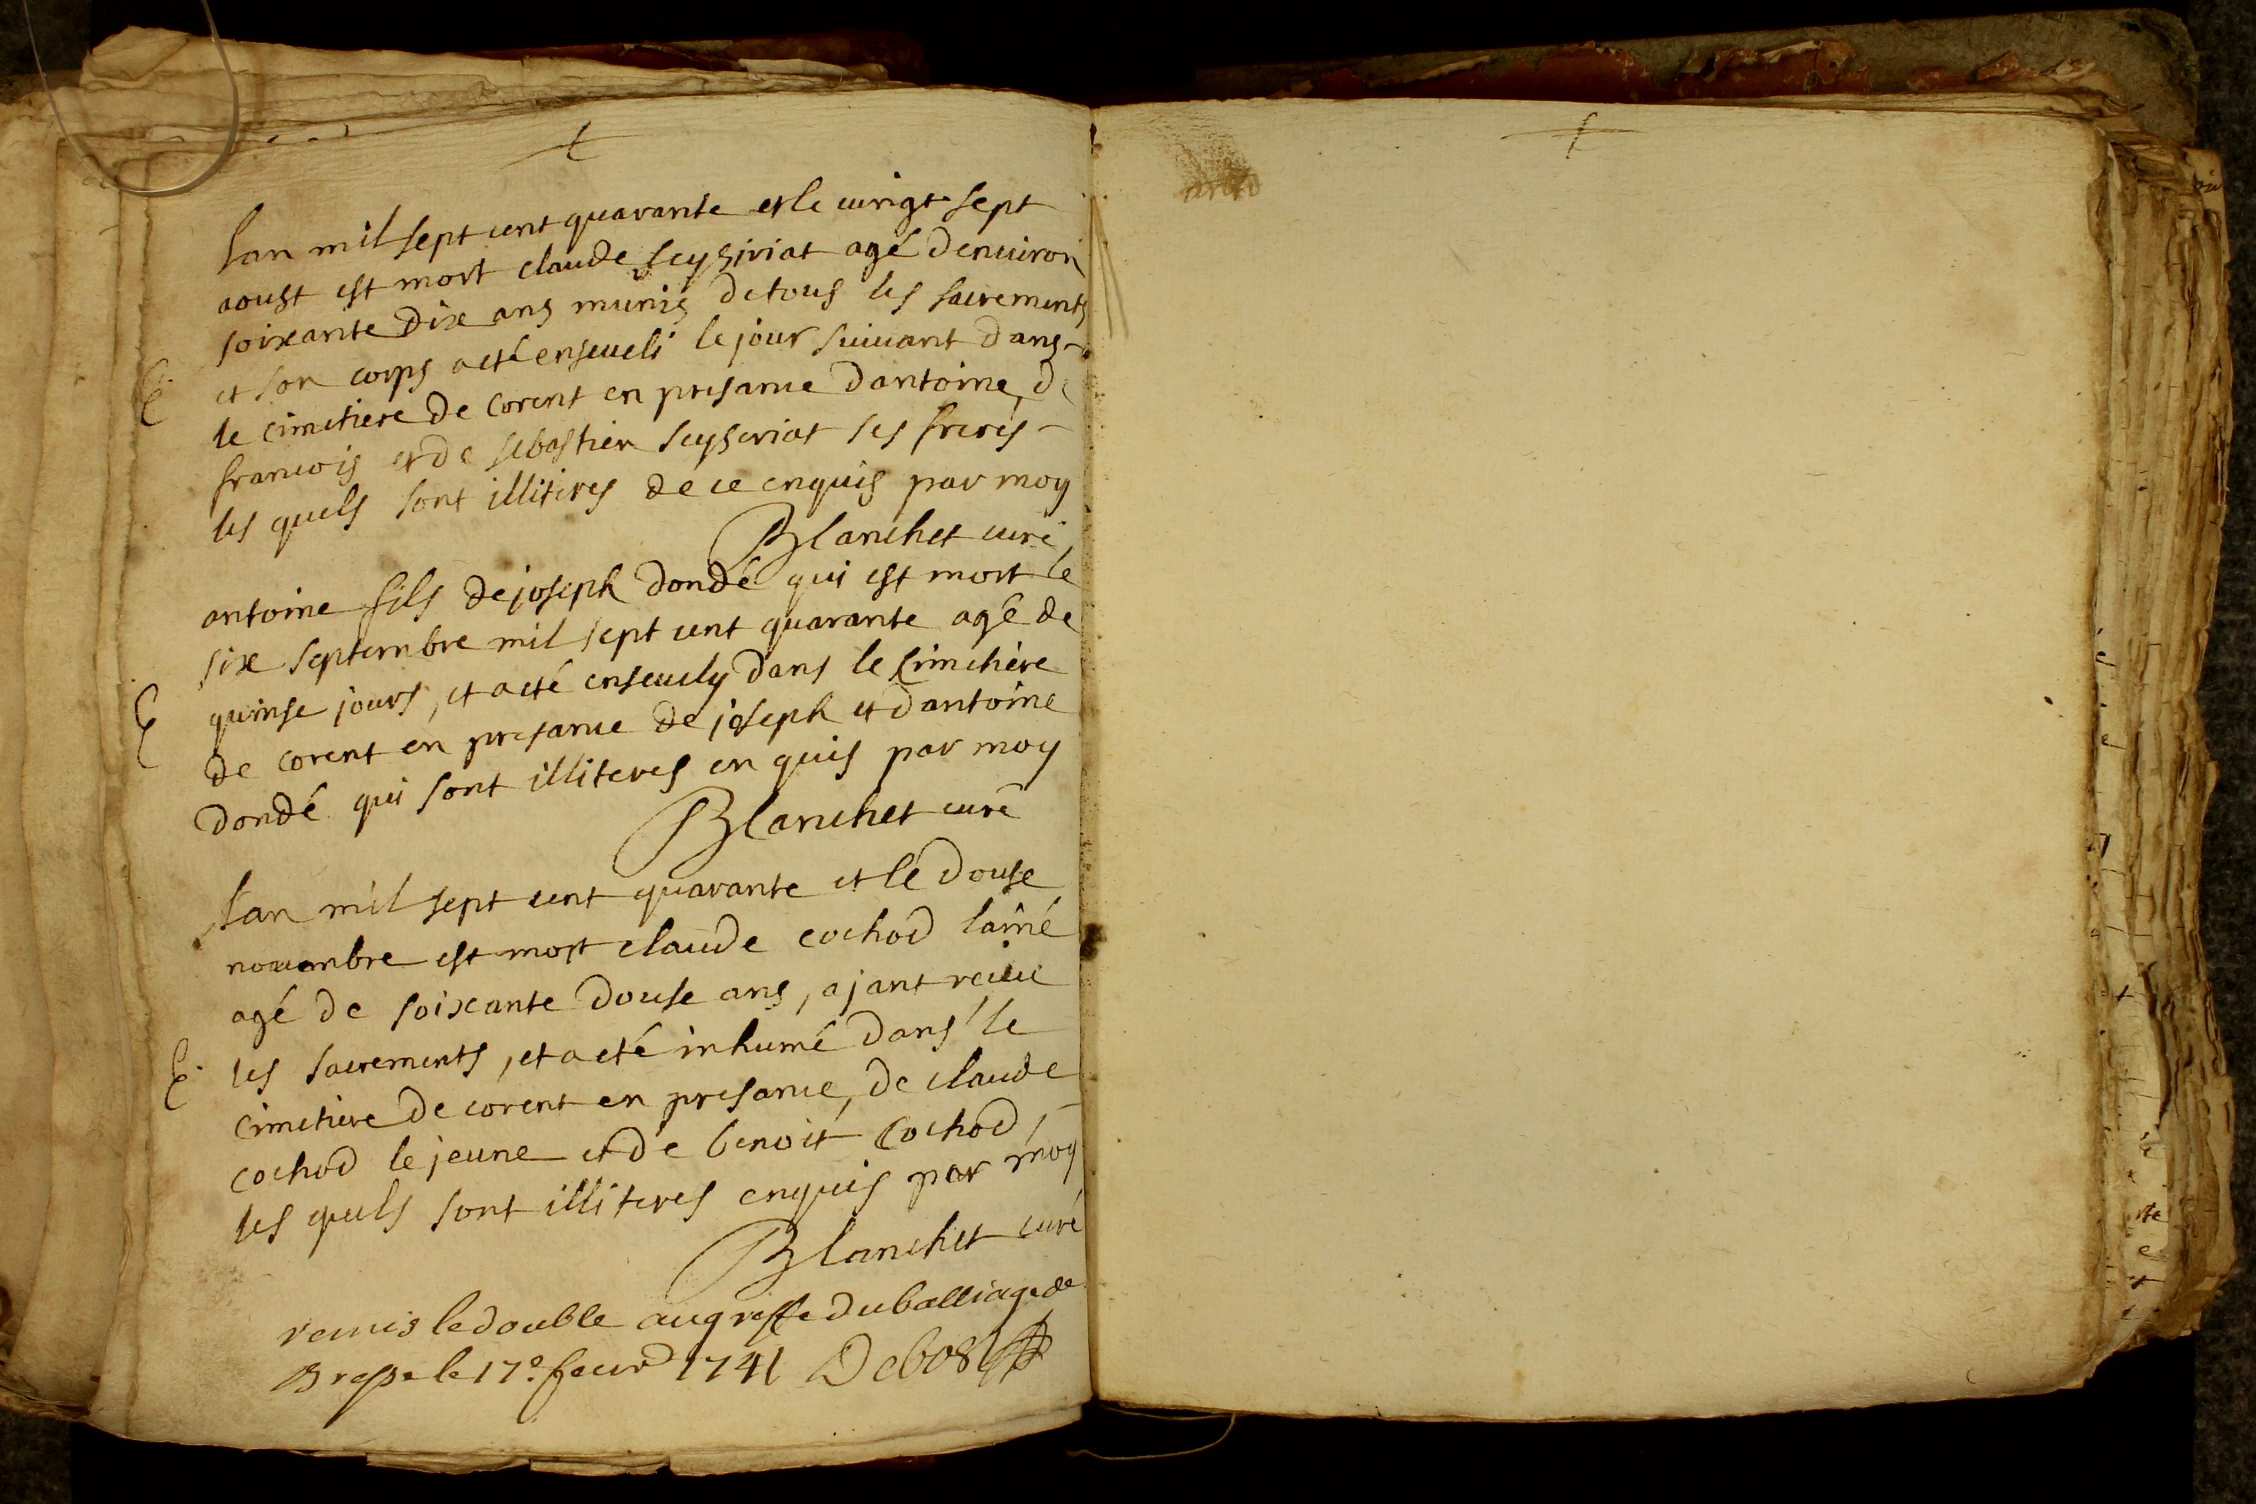 lan mil sept cent quarante et le vingt sept
aoust est mort claude seyziriat agé denuiron
soixante dix ans munis de tous les sacrements
E et son corps a eté enseueli le jour suiuant dans
le cimetiere de corent en presance dantoine, de
francois et de sebastien seyseriat ses freres
les quels sont illiteres de ce enquis par moy
Blanchet curé
antoine fils de joseph dondé qui est mort le
six septembre mil sept cent quarante agé de
E quinse jours, et a eté enseuely dans le cimetière
de corent en presance de joseph et dantoine
dondé qui sont illiteres en quis par moy
Blanchet curé
lan mil sept cent quarante et le douse
nouembre est mort claude cochod lainé
agé de soixante douse ans, ajant receu
E. les sacrements, et a eté inhumé dans le
cimetiere de corent en presance, de claude
cochod le jeune et de benoit Cochod,
les quels sont illiteres enquis par moy
Blanchet curé
remis le double au greffe du balliage de
Bresse le 17e. feur 1741 Debost